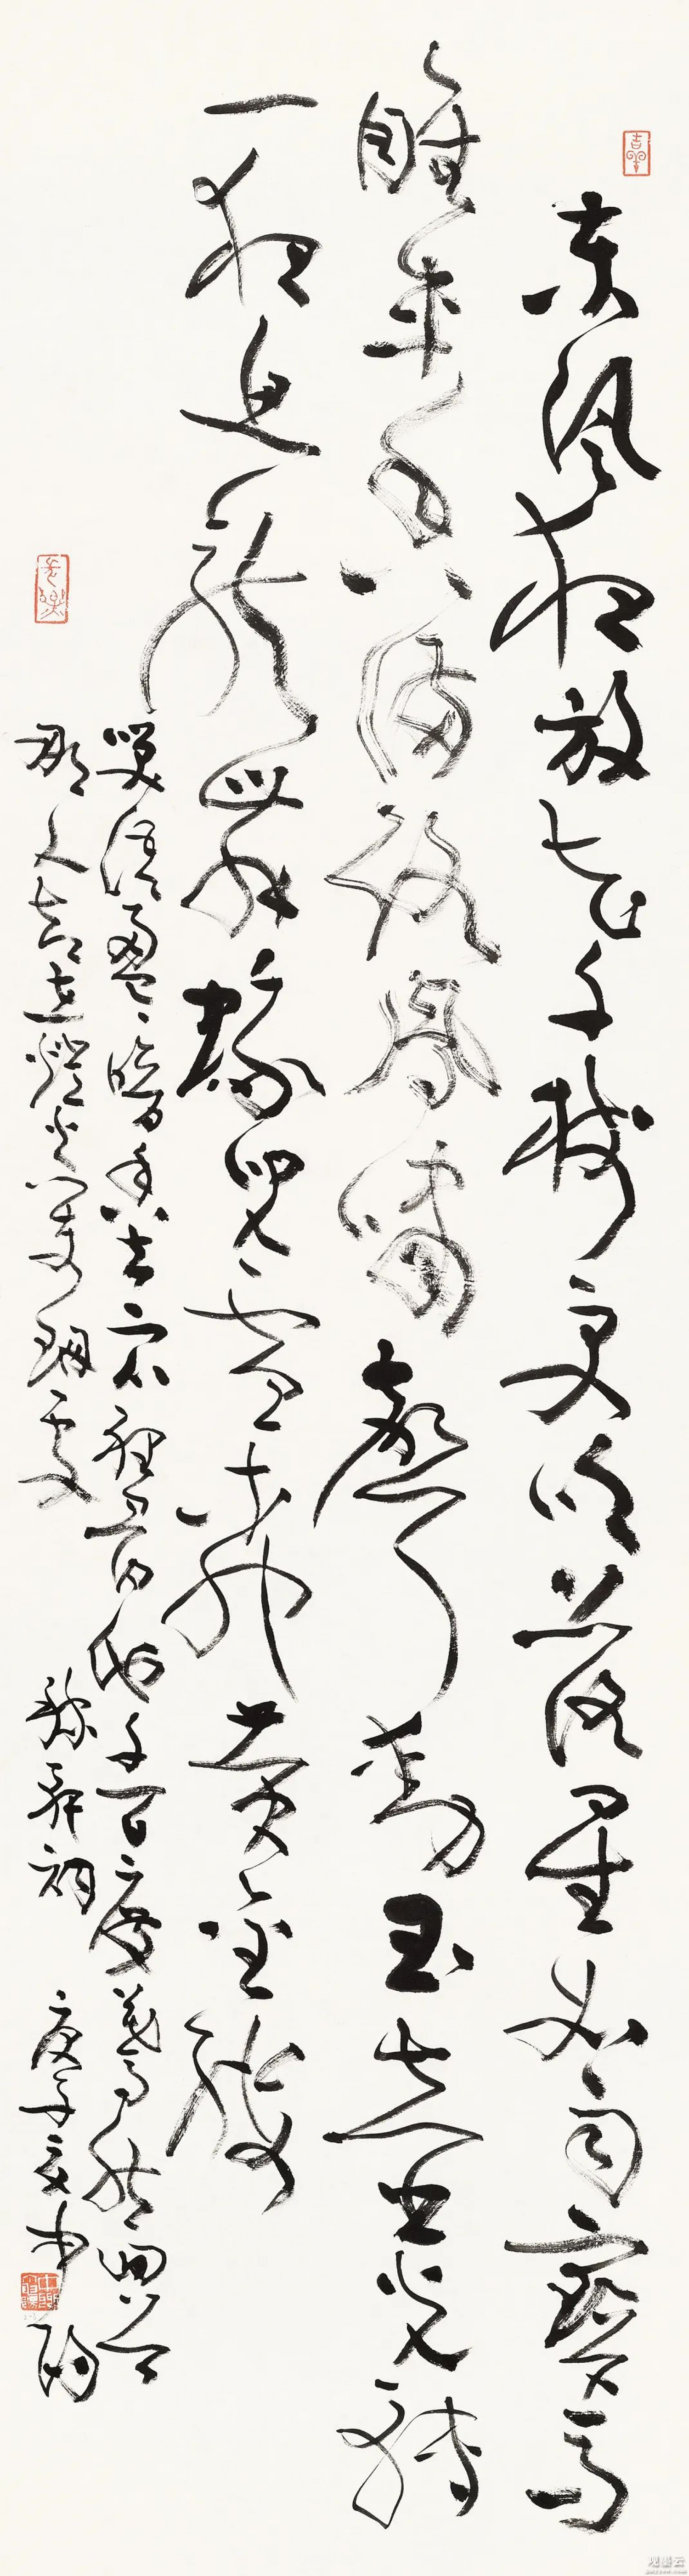 東風夜放花千樹更吹落星如雨寶馬
雕車香滿路鳳簫聲動玉壺光轉
一夜魚龍舞蛾兒雪柳黃金縷
笑語盈盈暗香去衆裡尋他千百度驀然回首
那人卻在燈火闌珊處 稼軒詞 庚子夏中陽